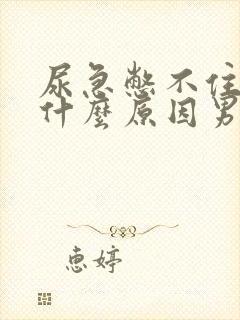 尿急憋不住
什麼原因男
惠婷